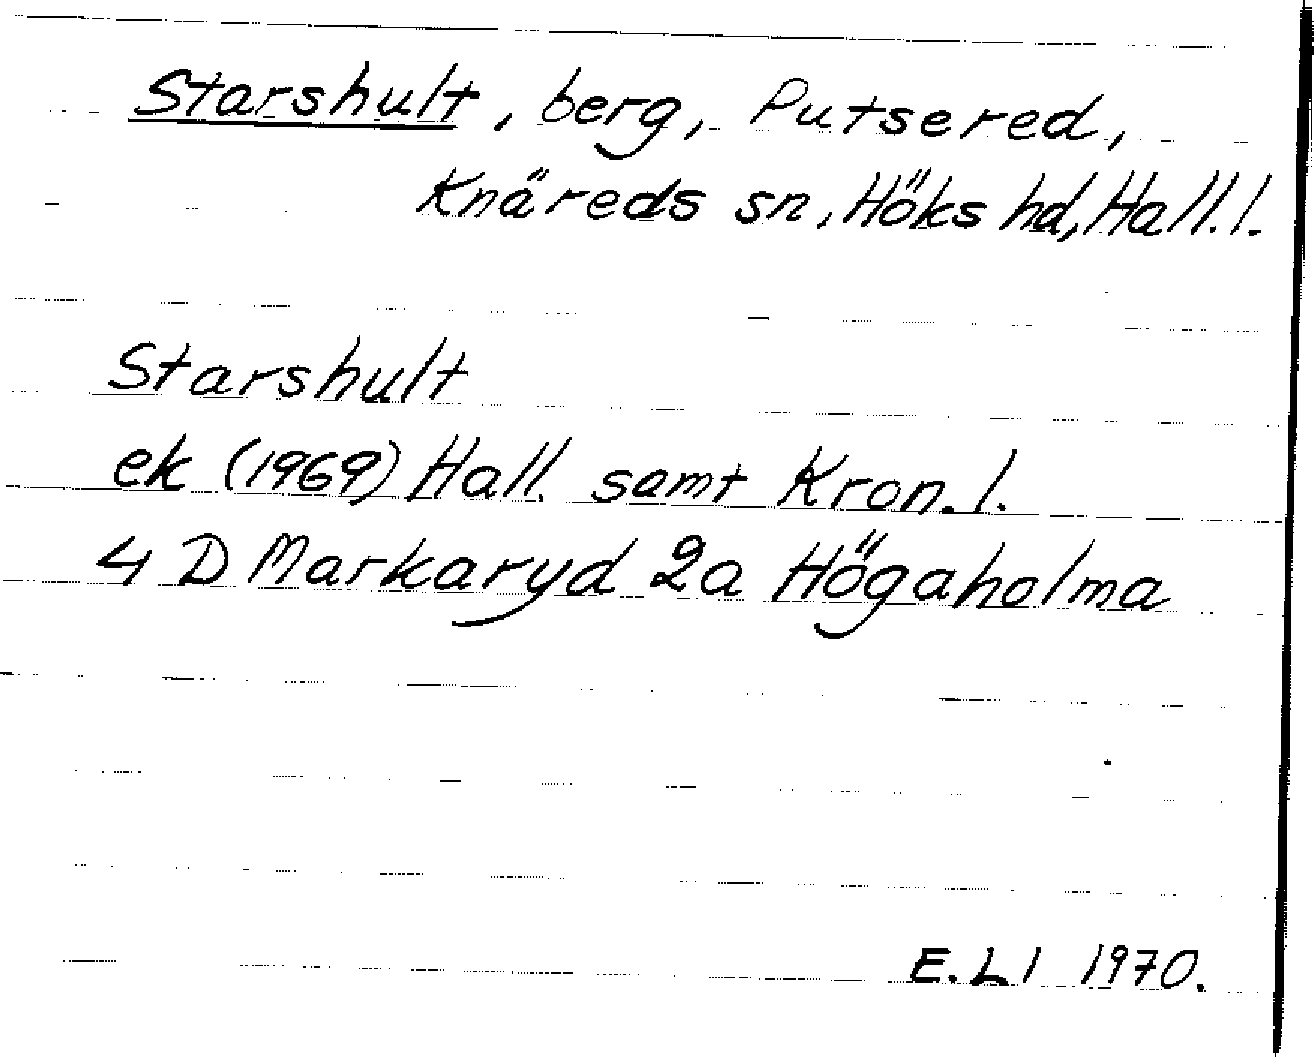 Starshult, berg, Putsered,
Knäreds sn, Höks hd, Hall. l.
Starshult
ek (1969) Hall. samt Kron. l.
4 D Markaryd 2a Högaholma
E. Ll 1970.